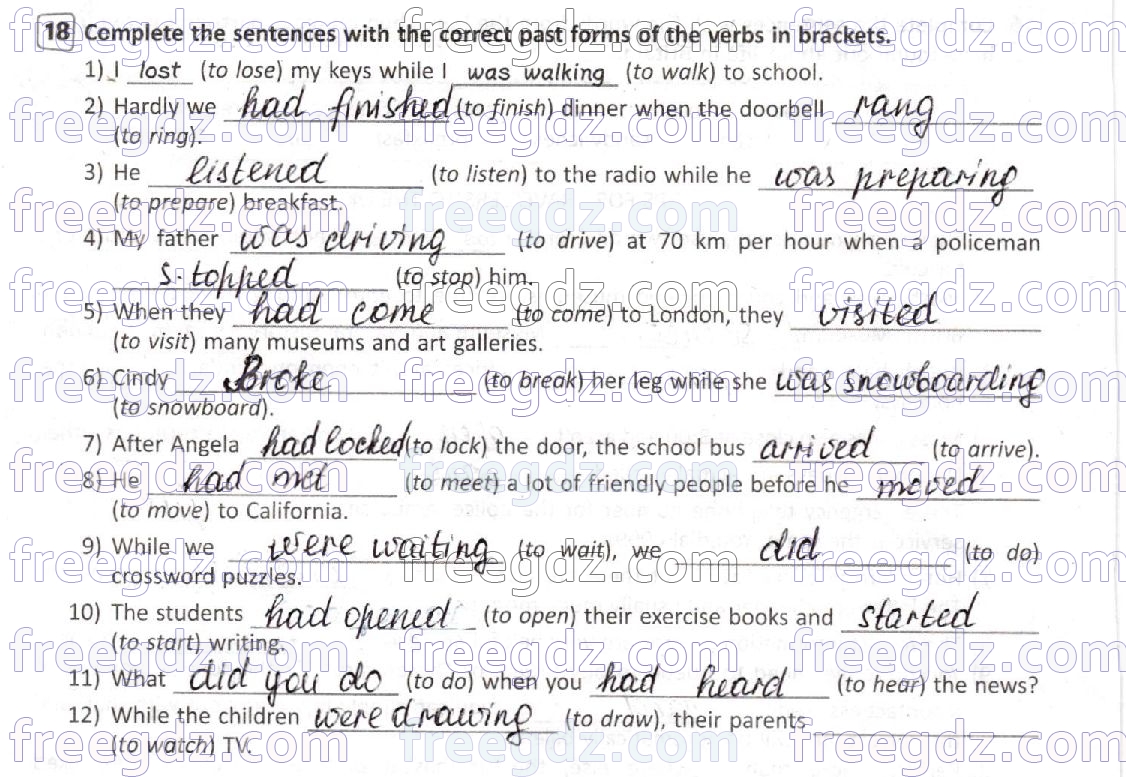 18 Complete the sentences with the correct past forms of the verbs in brackets.
1) I lost (to lose) my keys while I was walking (to walk) to school.
2) Hardly we had finished (to finish) dinner when the doorbell rang
(to ring).
3) He listened (to listen) to the radio while he was preparing
(to prepare) breakfast.
4) My father was driving (to drive) at 70 km per hour when a policeman
stopped (to stop) him.
5) When they had come (to come) to London, they visited
(to visit) many museums and art galleries.
6) Cindy Broke (to break) her leg while she was snowboarding
(to snowboard).
7) After Angela had locked (to lock) the door, the school bus arrived (to arrive).
8) He had met (to meet) a lot of friendly people before he moved
(to move) to California.
9) While we were waiting (to wait), we did (to do)
crossword puzzles.
10) The students had opened (to open) their exercise books and started
(to start) writing.
11) What did you do (to do) when you had heard (to hear) the news?
12) While the children were drawing (to draw), their parents
(to watch) TV.
freegdz.com